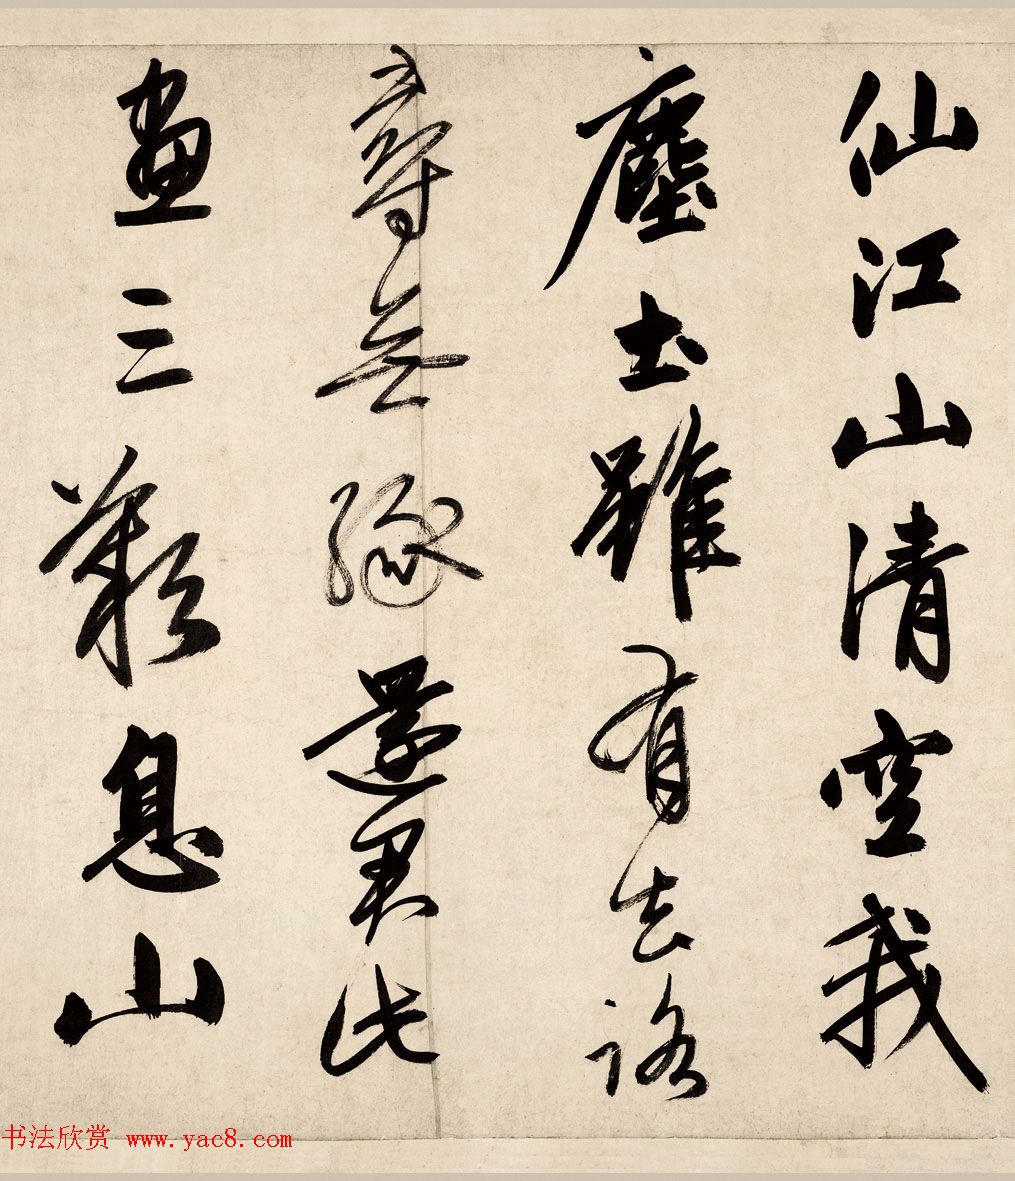 仙江山清空我
塵土雖有去路
尋無緣還君此
畫三歎息山
书法欣赏 www.yac8.com